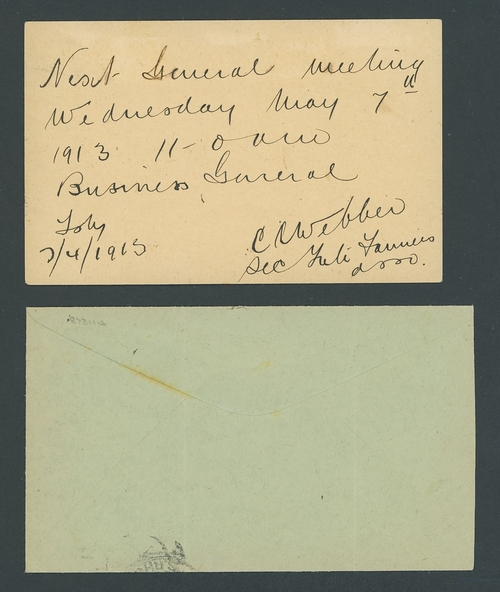 Next General meeting
Wednesday May 7th
1913 11-0 am
Business, General
7/4/1913
C C Webber
Sec Farmers